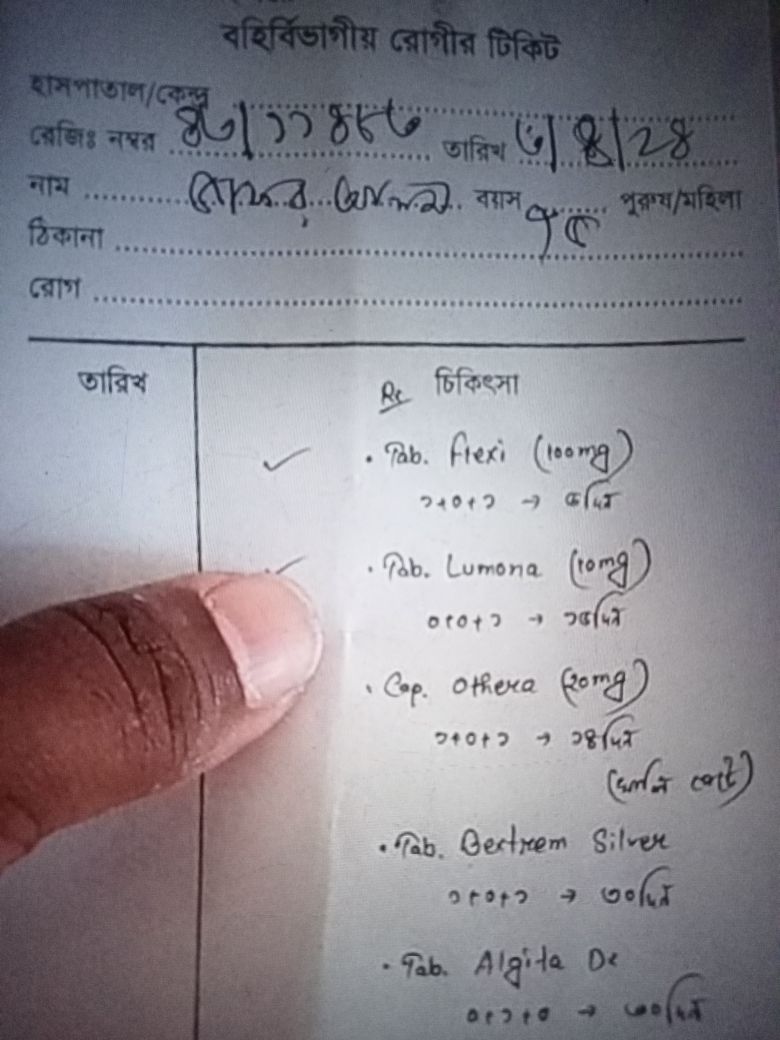 বহির্বিভাগীয় রোগীর টিকিট
হাসপাতাল/কেন্দ্র
রেজিঃ নম্বর তারিখ ৬/৪/২৪
নাম বয়স ৭৫ পুরুষ/মহিলা
ঠিকানা
রোগ
তারিখ Rx চিকিৎসা
• Tab. Flexi (100mg)
১+০+১ → ৫দিন
• Tab. Lumona (10mg)
০+০+১ → ১৫দিন
• Cap. Othera (20mg)
১+০+১ → ১৪দিন
(খালি পেটে)
• Tab. Bextrem Silver
১+০+১ → ৩০দিন
• Tab. Algita Dx
০+১+০ → ৩০দিন